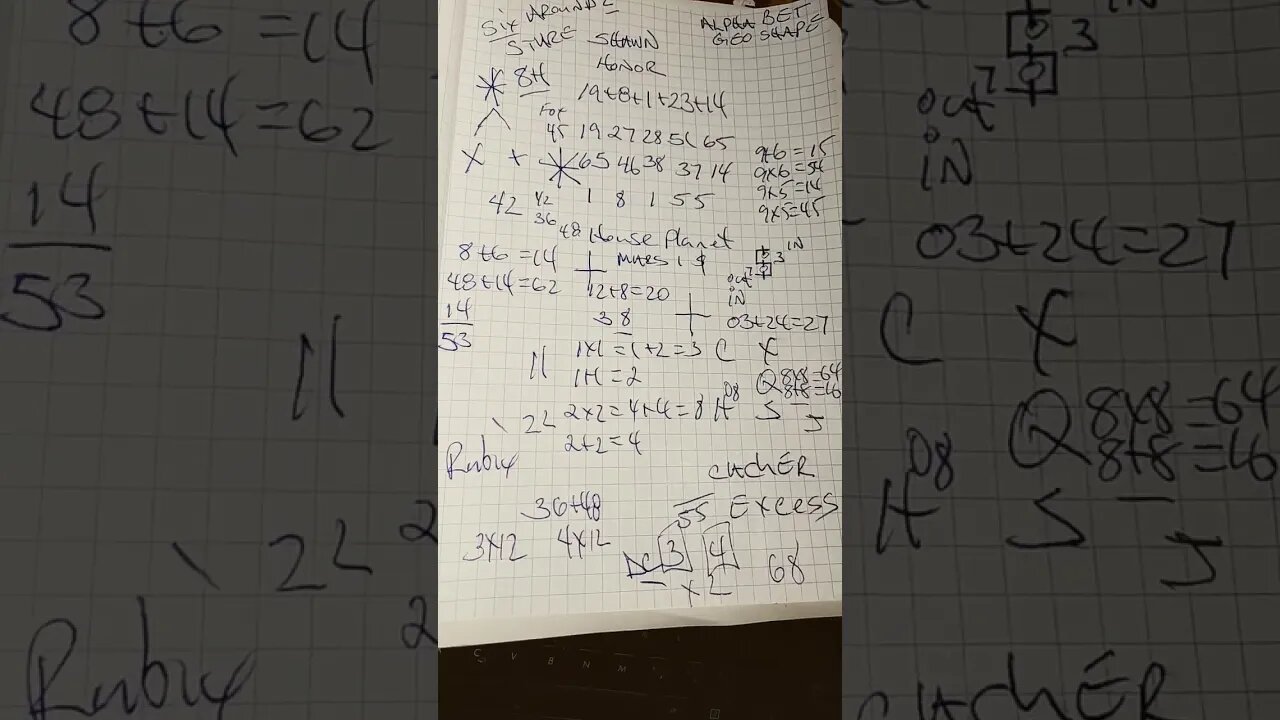 Six AROUND
STURE SHAWN
ALPHABET
GEO SHAPE
HONOR
8H
19+8+1+23+14
For
45 19 27 28 51 65
X + 65 46 38 37 14
9+6=15
9x6=54
9x5=14
9x5=45
42 42 1 8 1 5 5
36
48 House Planet
8+6=14
MARS
3 IN
48+14=62
12+8=20
out 7
iN
14
53
38
03+24=27
11
1x1=1+2=3 C X
1+1=2
Q 8x8=64
8+8=16
22 2x2=4+4=8 H 08 S J
2+2=4
Rubix
36+48
55 Excess
3x12 4x12
3 4 68
x 2
C V B N M